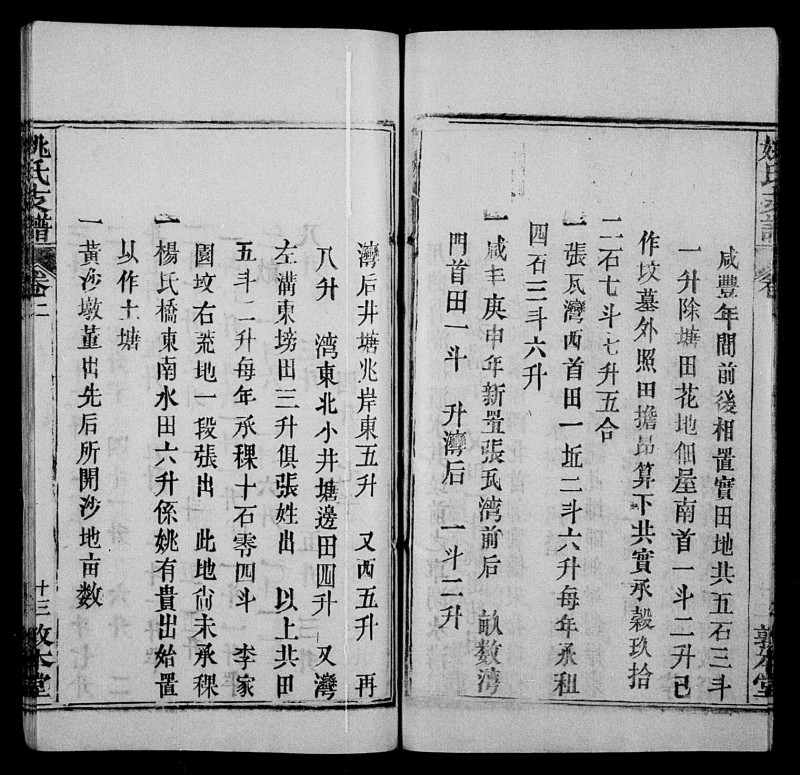 姚氏支譜
卷
敦本堂
咸豐年間前後相置實田地共五石三斗
一升除塘田花地佃屋南首一斗二升已
作坟墓外照田擔昂算下共實承穀玖拾
二石七斗七升五合
一張瓦灣西首田一坵二斗六升每年承租
四石三斗六升
一咸丰庚申年新置張瓦湾前后 畝数湾
門首田一斗 升灣后 一斗二升
灣后井塘兆岸東五升 又西五升 再
八升 湾東北小井塘邊田四升 又灣
左溝東塝田三升俱張姓出 以上共田
五斗二升每年承稞十石零四斗 李家
園坟右荒地一段張出 此地尚未承稞
一楊氏橋東南水田六升係姚有貴出始置
以作土塘
一黄沙墩董出先后所開沙地亩数
姚氏支譜
卷二
十三
敦本堂